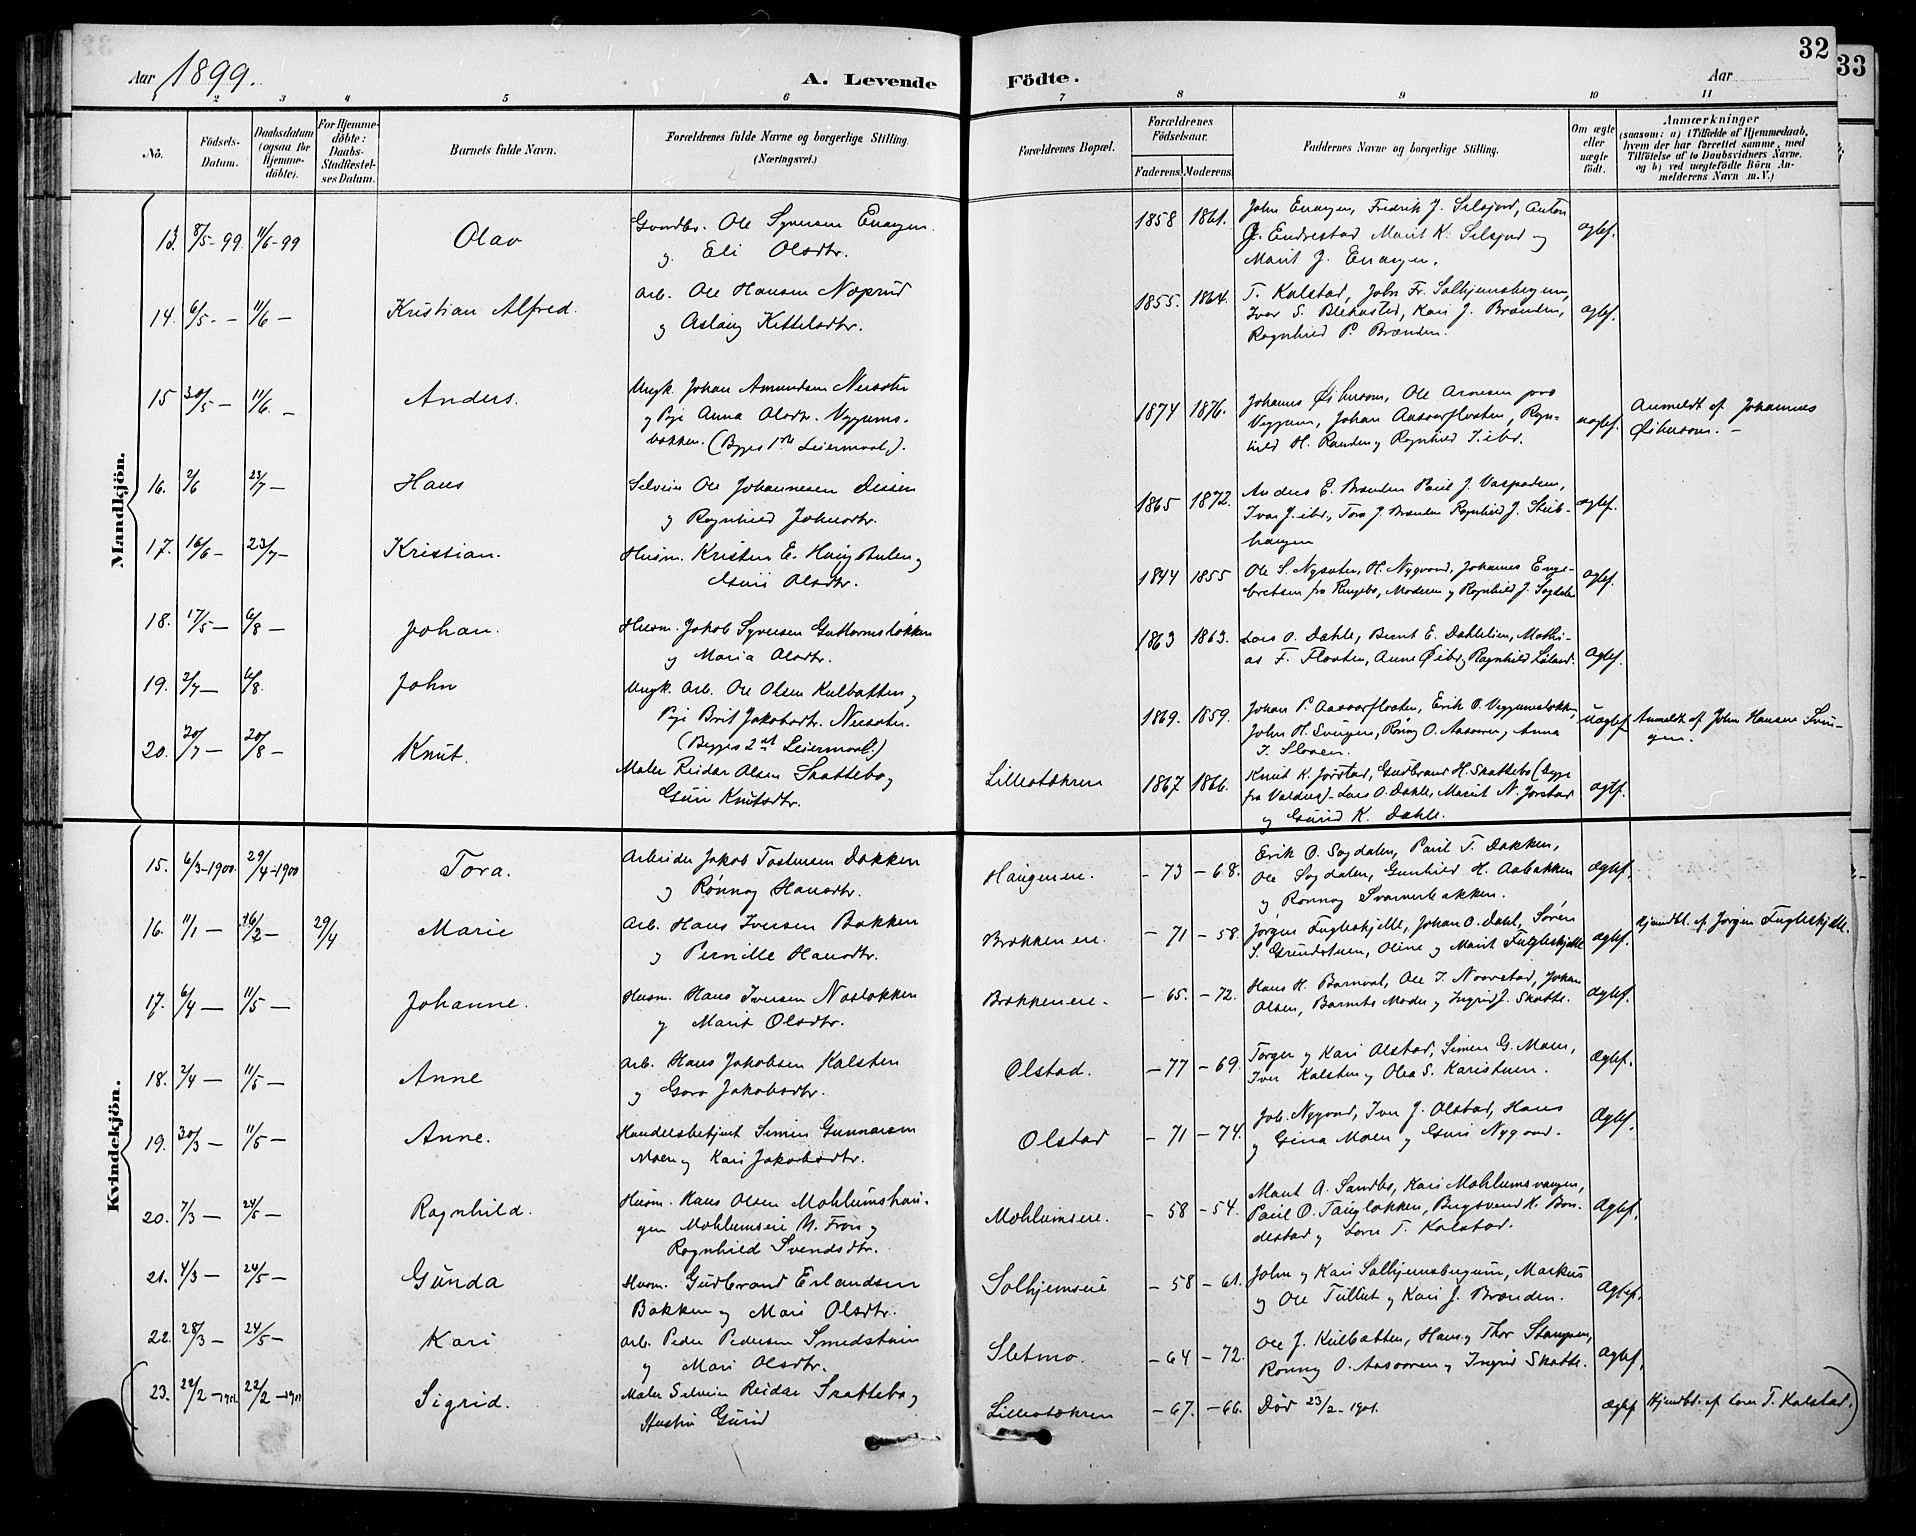 32
33
Aar 1899.
A. Levende Födte.
Aar
1 2 3 4 5 6 7 8 9 10 11
No.
Födsels-
Datum.
Daabsdatum
(ogsaa for
Hjemme-
döbte).
For Hjemme-
döbte:
Daabs-
Stadfæstel-
ses Datum.
Barnets fulde Navn.
Forældrenes fulde Navne og borgerlige Stilling.
(Næringsvei.)
Forældrenes Bopæl.
Forældrenes
Födselsaar.
Faderens. Moderens.
Faddernes Navne og borgerlige Stilling.
Om ægte
eller
uægte
födt.
Anmærkninger
(saasom: a) i Tilfælde af Hjemmedaab,
hvem der har forrettet samme, med
Tilföielse af to Daabsvidners Navne,
og b) ved uægtefödte Börn An-
melderens Navn m. V.)
Mandkjön.
13. 8/5-99 11/6-99 Olav
Gaardbr. Ole Syversen
og Eli Olsdtr.
1858 1861.
John Fredrik J. Silsjord, Anton
Endrestad Marit K. Silsjord og
Marit J.
ægtef.
14. 6/5 - 11/6 - Kristian Alfred.
Arb. Ole Hansen Noprud
og Aslaug Kittelsdtr.
1855. 1864.
T. Kalstad, John Fr. Solhjemsbergum,
Iver S. Blekasted, Kari J. Brænden,
Ragnhild P. Brænden.
ægtef.
15 30/5 - 11/6. - Anders.
Ungk. Johan Amundsen Nersæter
og Pige Anna Olsdtr. Veggums-
bakken. (Begges 1ste Leiermaal).
1874 1876.
Johannes Øihusom, Ole Arnesen paa
Veggum, Johan Aasaarfloten, Ragn-
hild H. Randen og Ragnhild ibd.
uægtef.
Anmeldt af Johannes
Øihusom. -
16. 2/6 23/7 - Hans
Selveier Ole Johannesen
og Ragnhild Johnsdtr.
1865 1872.
Anders E. Brænden Paul J.
Ivar J. ibd., Tora J. Brænden Ragnhild J.
haugen
ægtef.
17. 16/6 - 23/7 - Kristian.
Husm. Kristen E. Haugstulen og
Olsdtr.
1844 1855
Ole S. Nysæter, H. Nygaard, Johannes Enge-
bretsen fra Ringebo, Moderen og Ragnhild J. Sogdalen
ægtef.
18. 17/5 - 6/8 - Johan.
Husm. Jakob Syversen Guttormsløkken
og Maria Olsdtr.
1863 1863.
Lars O. Dahle, Bernt E. Dahlelien, Mathi-
as F. Floten, Anne Øibø og Ragnhild
ægtef.
19. 2/7 - 6/8. John
Ungk. Arb. Ole Olsen Kulbatten og
Pige Brit Jakobsdtr. Nersæter.
(Begges 2det Leiermaal.)
1869. 1859.
Johan P. Aasaarfloten, Erik P. Veggumsløkken,
John H. Svingen, Rønnog O. Aasaaren og Anna
I. Sloven.
uægtef
Anmeldt af John Hansen Svin-
gen.
20. 20/7 - 20/8 - Knut.
Maler Reidar Olsen Skattebo og
Guri Knutsdtr.
Lillestøkren
1867 1866.
Knut K. Jørstad, Gudbrand H. Skattebo (begge
fra Valdres) - Lars O. Dahle, Marit N. Jørstad
og Gurid K. Dahle.
ægtf.
Kvindekjön.
15. 6/3-1900. 29/4-1900 Tora.
Arbeider Jakob Tostensen Dokken
og Rønnog Hansdtr.
Haugen eie.
- 73 - 68.
Erik O. Sogdalen, Paul T. Dokken,
Ole Sogdalen, Gunhild H. Aabakken
og Rønnog Svarverbakken.
ægtef.
16. 11/1 - 16/2 - 29/4 Marie
Arb. Hans Iversen Bakken
og Pernille Hansdtr.
Brekken eie.
- 71 - 58.
Jørgen Fugleskjelle, Johan O. Dahl, Søren
S. Grundstuen, Oline og Marit Fugleskjelle
ægtef.
Hjemdbt. af Jørgen Fugleskjelle.
17. 6/4 - 11/5 - Johanne.
Husm. Hans Iversen Nosløkken
og Marit Olsdtr.
Brekken eie -
- 65. - 72.
Hans H. Barnvol, Ole I. Noorstad, Johan
Olsen, Barnets Moder og Ingrid J. Skotte.
ægtef.
18. 2/4 - 11/5 - Anne
Arb. Hans Jakobsen Kalsten
og Goro Jakobsdtr.
Olstad.
- 77 - 69.
Torger og Kari Olstad, Simen G. Moen,
Iver Kalsten og Olea S. Karistuen.
ægtef.
19. 30/3 - 11/5 - Anne.
Handelsbetjent Simen Gunnarsen
Moen og Kari Jakobsdtr.
Olstad
- 71 - 74.
Joh. Nygaard, Iver J. Olstad, Hans
og Gina Moen og Guri Nygaard.
ægtef.
20. 7/3 - 24/5 - Ragnhild.
Husm. Hans Olsen Mohlumshau-
gen Mohlumseie N. Fron og
Ragnhild Svendsdtr.
Mohlumseie.
- 58 - 54.
Marit A. Sandbo, Kari Mohlumsvangen,
Paul O. Tangløkken, Bergsvend K. Bon-
destad og Lars T. Kalstad.
ægtef.
21. 4/3 - 24/5 - Gunda
Husm. Gudbrand Erlandsen
Bakken og Mari Olsdtr.
Solhjemseie
- 58 - 61.
John og Kari Solhjemsbergum, Markus
og Ole Tullut og Kari J. Brænden.
ægtef.
22. 28/3 - 24/5 - Kari
Arb. Peder Pedersen Smedstuen
og Mari Olsdtr.
Sletmo.
- 64 - 72.
Ole J. Kulbatten, Hans og Thor Stangen,
Rønnog O. Aasaaren og Ingrid Skotte.
ægtef.
23. 22/2 -1901. 22/2 -1901 Sigrid.
Maler Selveier Reidar Skattebo og
Hustru Gurid
Lillestøkren
- 67. - 66.
Død 23/2 - 1901.
ægtef
Hjemdbt. af Lars T. Kalstad.)